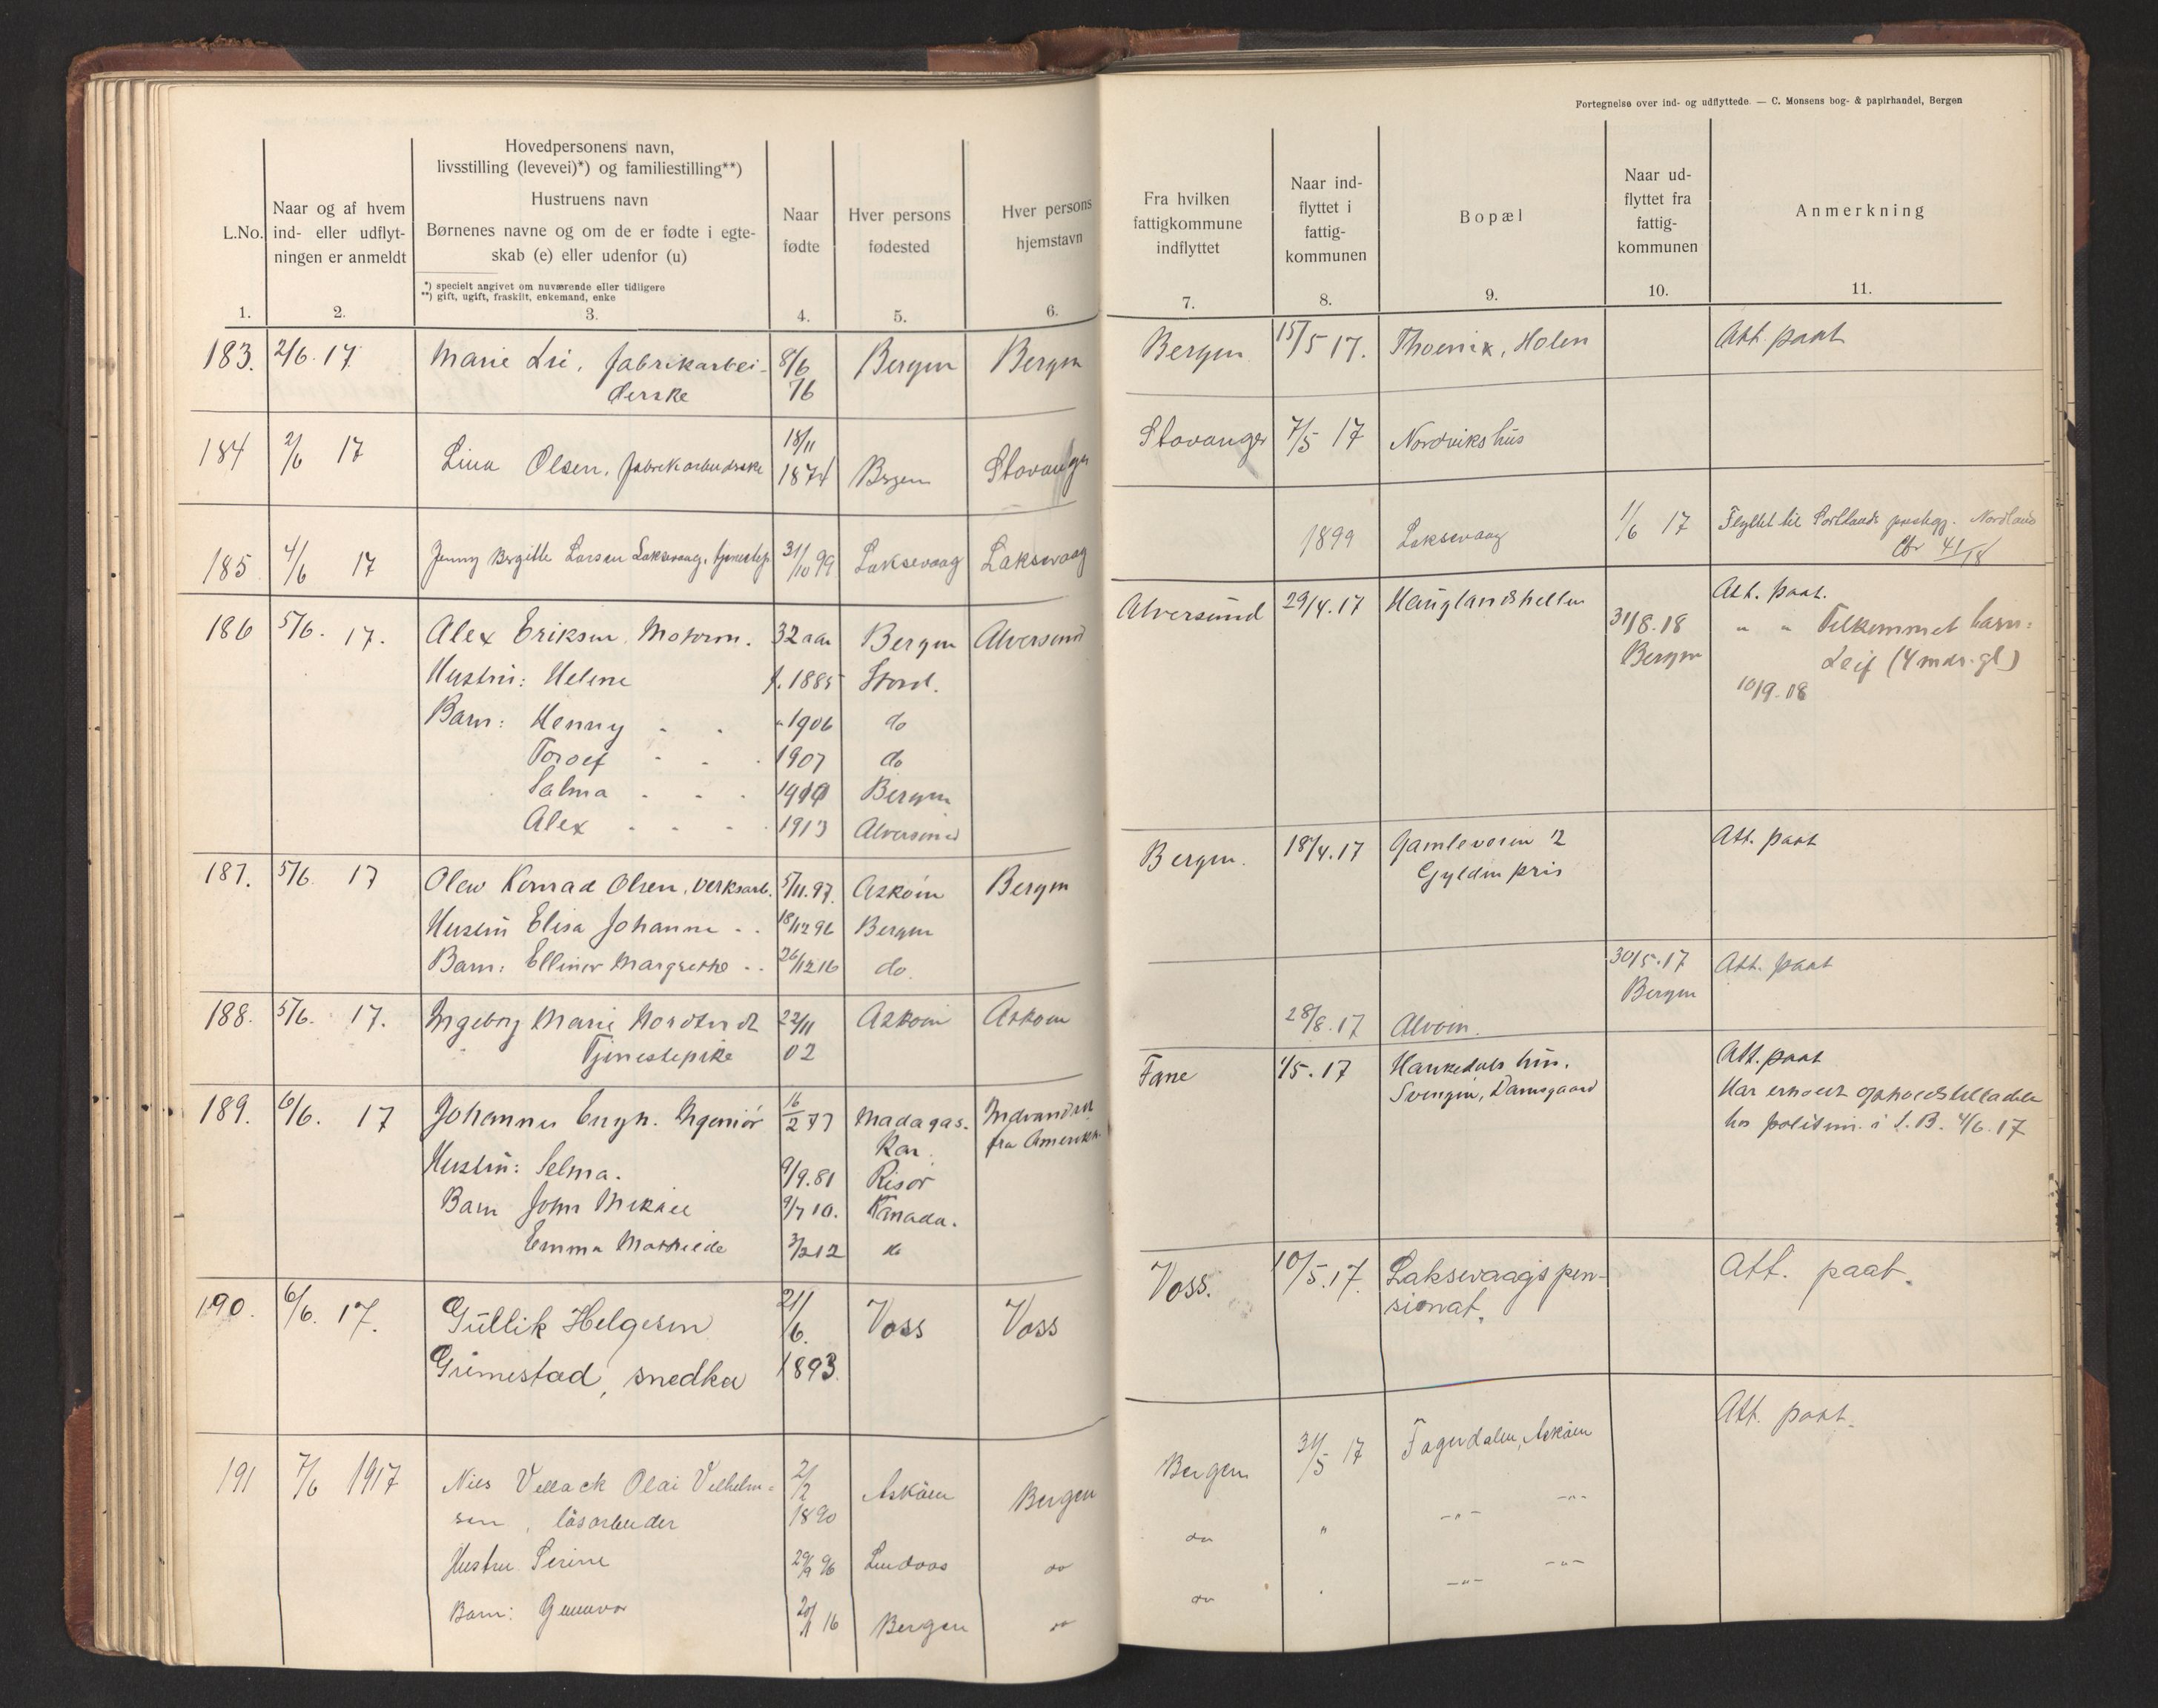 Fortegnelse over ind- og udflyttede. — C. Monsens bog- & papirhandel, Bergen
L.No.
1.
Naar og af hvem
ind- eller udflyt-
ningen er anmeldt
2.
Hovedpersonens navn,
livsstilling (levevei)*) og familiestilling**)
Hustruens navn
Børnenes navne og om de er fødte i egte-
skab (e) eller udenfor (u)
*) specielt angivet om nuværende eller tidligere
**) gift, ugift, fraskilt, enkemand, enke
3.
Naar
fødte
4.
Hver persons
fødested
5.
Hver persons
hjemstavn
6.
Fra hvilken
fattigkommune
indflyttet
7.
Naar ind-
flyttet i
fattig-
kommunen
8.
Bopæl
9.
Naar ud-
flyttet fra
fattig-
kommunen
10.
Anmerkning
11.
183. 2/6. 17. Marie Lri, fabrikarbei- 8/6 Bergen Bergen Bergen 15/5 17. Holen Att. paat
derske 76
184 2/6 17 Lina Olsen, fabrikarbeiderske 18/11 1874 Bergen Stavanger Stavanger 7/5 17 Nordvikshus
185 4/6 17 Jenny Bergitte Larsen Laksevaag, tjenestep. 31/10 99 Laksevaag Laksevaag 1899 Laksevaag 1/6 17 Flyttet til prestegj. Nordland
Cfr 41/18
186 5/6. 17. Alex Eriksen Motorm. 32 aar Bergen Alversund Alversund 29/4. 17 Hauglandshellen Att. paat.
Hustru: Helene f. 1885 Stord. 31/8. 18 Bergen " " Tilkommet barn:
Leif (4 mdr. gl)
10/9. 18
Barn: Henny - - " 1906 do
Torolf - - - 1907 do
Salma - - - 1910 Bergen
Alex - - - 1913 Alversund
187. 5/6 17 Olav Konrad Olsen, verksarb. 5/11. 97. Askøen Bergen Bergen. 18/4. 17 Gamleveien 2 Att. paat
Gyldenpris
Hustru Elisa Johanne - - 18/12 96 Bergen
Barn: Ellinor Margrethe - - 26/12 16 do.
188. 5/6. 17. Ingeborg Marie Nordtvedt 22/11 Askøen Askøen 30/5. 17 Att. paat
Tjenestepike 02 Bergen
28/8. 17 Alvøen.
189. 6/6. 17 Johannes Engh. Ingeniør 16/2 77 Madagas- Indvandret Fane 1/5. 17 Haukedals hus. Att. paat
kar. fra Amerika. Svingen, Damsgaard Har erholdt opholdstilladelse
hos politim. i S. B. 4/6. 17
Hustru: Selma. 9/9. 81 Risør
Barn John Mikael 9/7 10. Kanada.
Emma Mathilde 3/2 12 do
190. 6/6. 17. Gullik Helgesen 21/6. Voss Voss Voss. 10/5. 17. Laksevaags pen- Att. paat.
Grimestad, snedker 1893. sionat.
191 7/6 1917 Nils Vellack Olai Vilhelm- 2/2 Askøen Bergen Bergen 31/5 17 Fagerdalen, Askøen Att. paat.
sen, løsarbeider 1890
Hustru Serine 29/9 96 Lindaas do do " -"- -"-
Barn: Gunnvor 20/1 16 Bergen do do -"- -"-